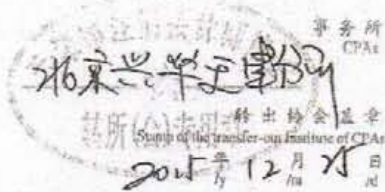 事务所
CPAs
北京兴华天津分所
转出协会盖章
Stamp of the transfer-out Institute of CPAs
2015年12月25日
/y /m /d